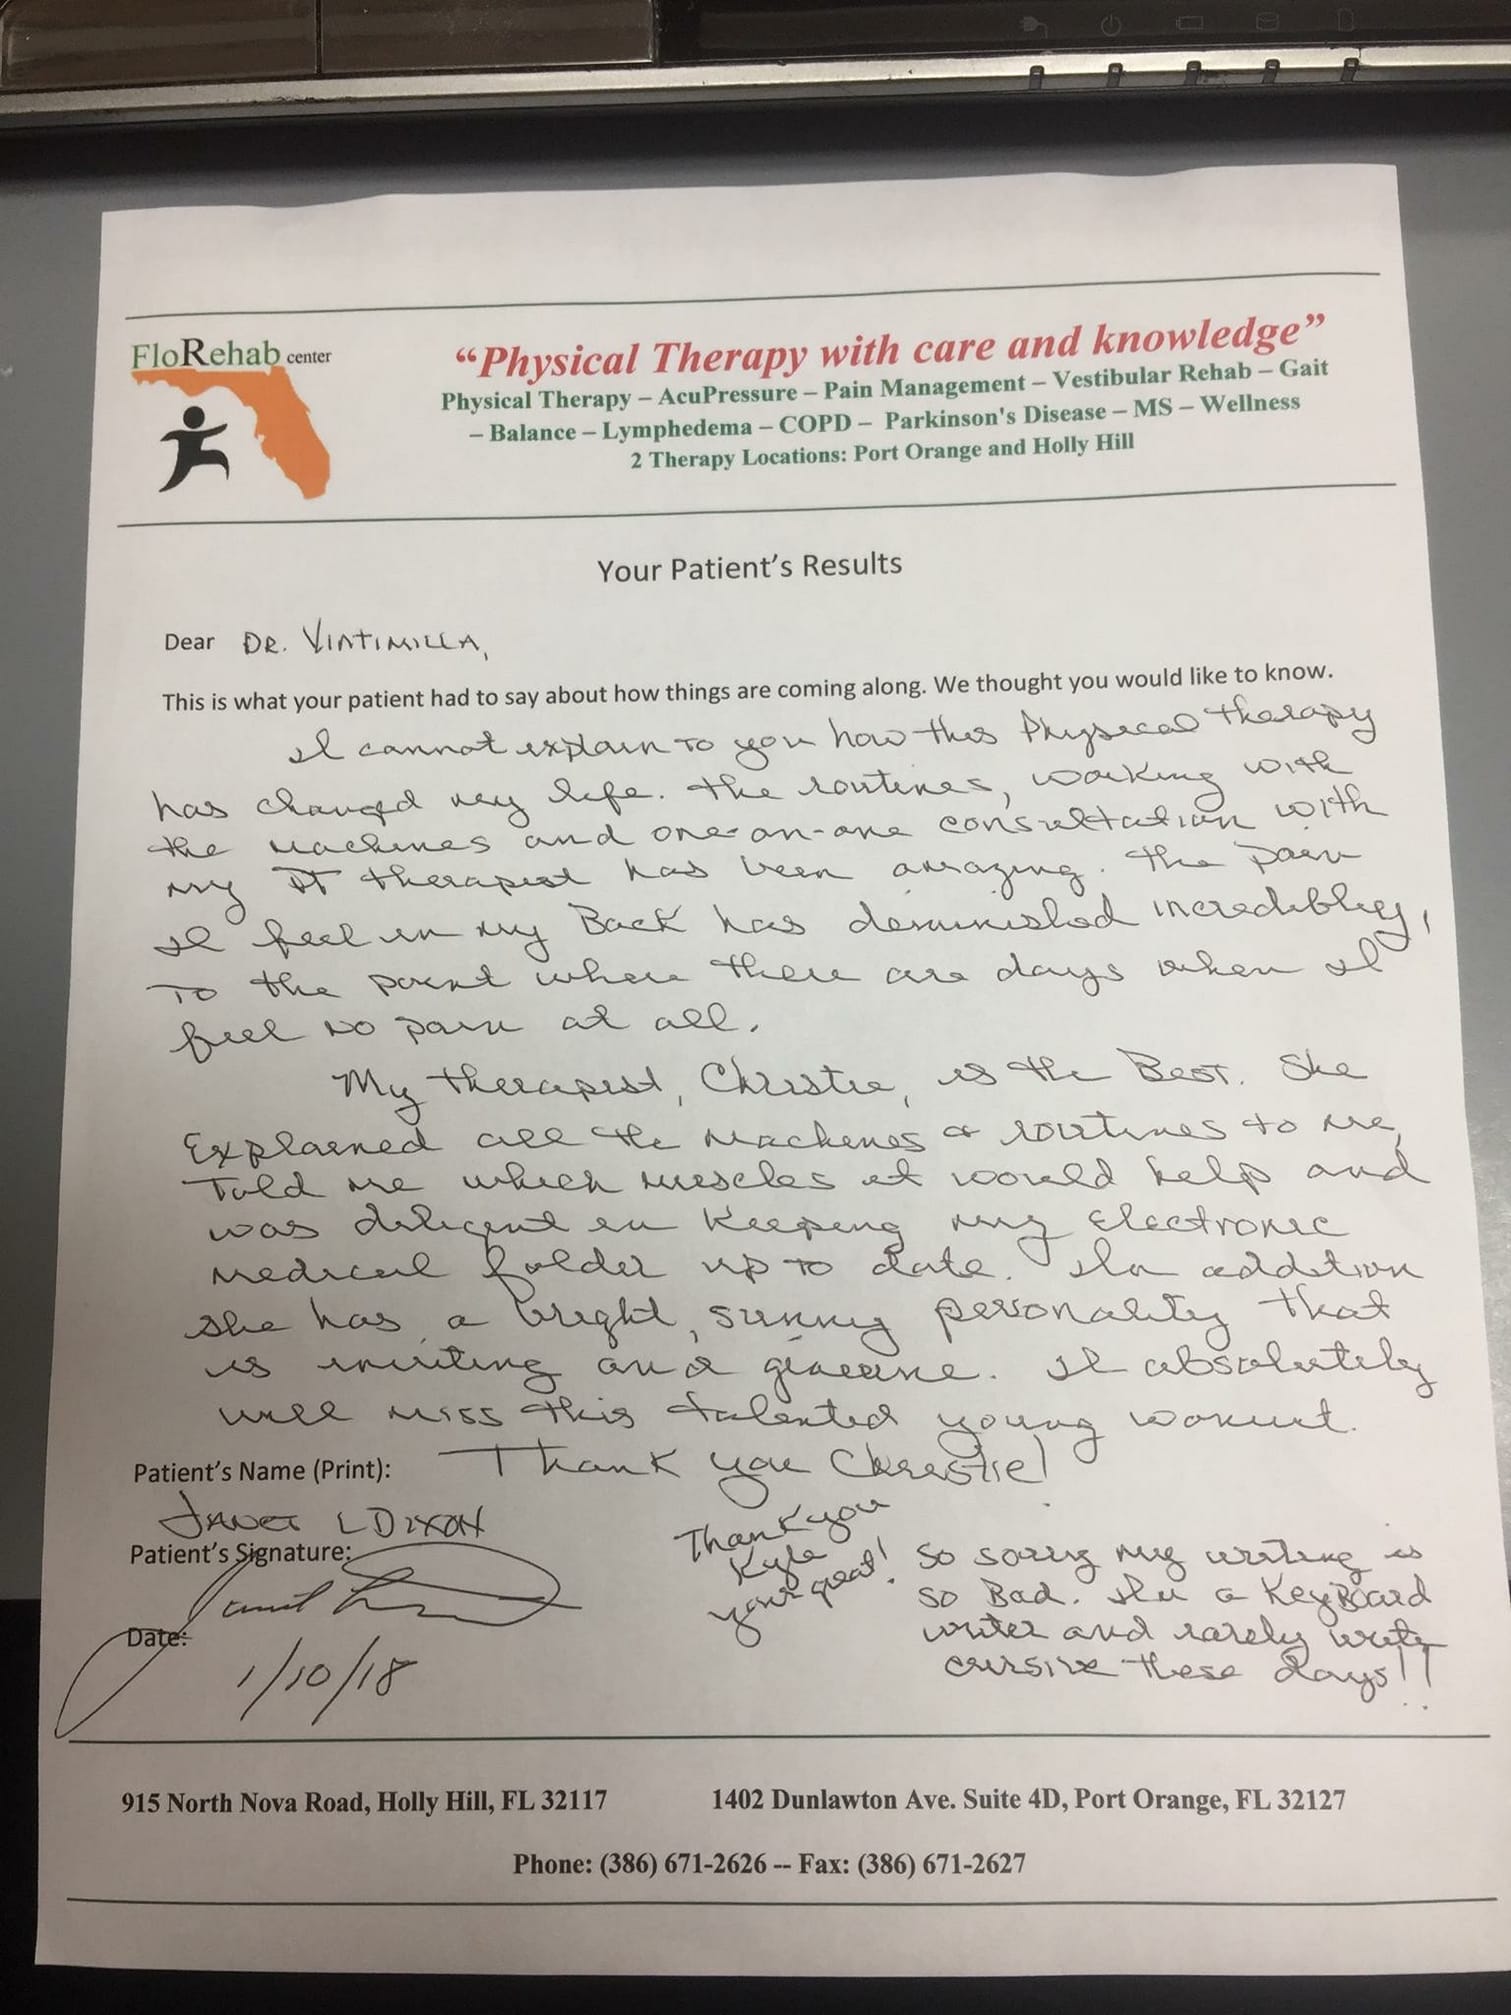 FloRehab center
“Physical Therapy with care and knowledge”
Physical Therapy – AcuPressure – Pain Management – Vestibular Rehab – Gait
– Balance – Lymphedema – COPD – Parkinson's Disease – MS – Wellness
2 Therapy Locations: Port Orange and Holly Hill
Your Patient’s Results
Dear DR. VINTIMILLA,
This is what your patient had to say about how things are coming along. We thought you would like to know.
I cannot explain to you how this Physical therapy
has changed my life. The routines, working with
the machines and one-on-one consultation with
my PT therapist has been amazing. The pain
I feel in my Back has deminished incredibley,
To the point where there are days when I
feel no pain at all.
My therapist, Christie, is the Best. She
Explained all the machines & routines to me,
Told me which muscles it would help and
was diligent in keeping my Electronic
medical folder up to date. In addition
she has a bright, sunny personality that
is inviting and genuine. I absolutely
will miss this talented young woman.
Patient’s Name (Print): Thank you Christie!
JANET L DIXON
Patient’s Signature:
Thank you
Kyle
your great!
So sorry my writing is
so Bad. I'm a KeyBoard
writer and rarely write
cursive these days!!
Date:
1/10/18
915 North Nova Road, Holly Hill, FL 32117 1402 Dunlawton Ave. Suite 4D, Port Orange, FL 32127
Phone: (386) 671-2626 -- Fax: (386) 671-2627